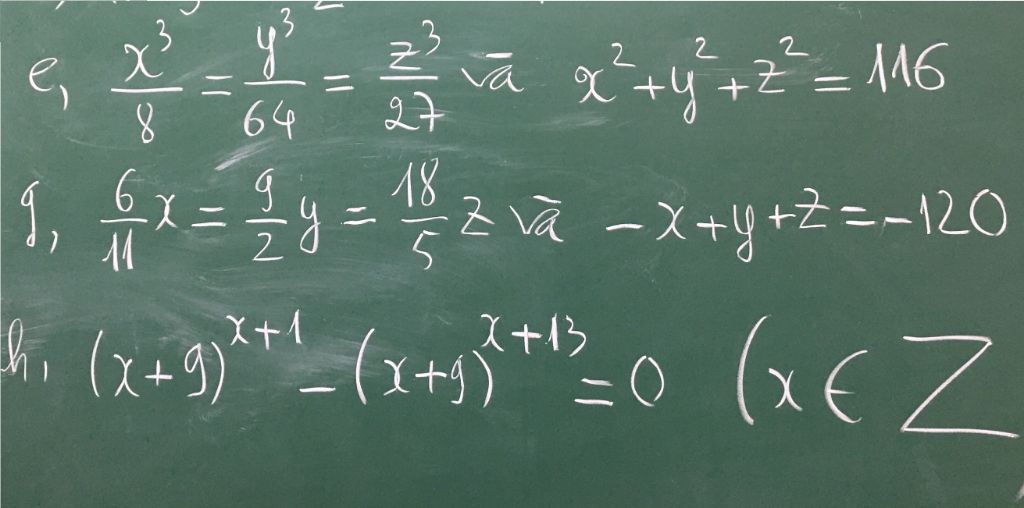 e, x³/8 = y³/64 = z³/27 và x² + y² + z² = 116
g, 6/11 x = 9/2 y = 18/5 z và - x + y + z = - 120
h, (x + 9)^(x + 1) - (x + 9)^(x + 13) = 0 (x ∈ Z